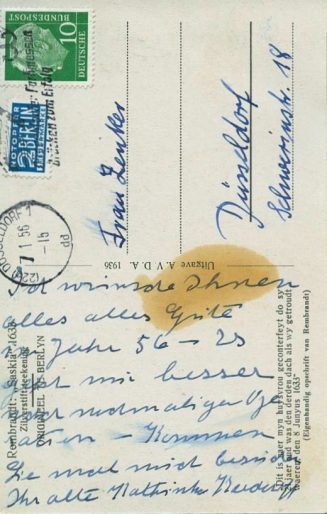 10
DEUTSCHE
BUNDESPOST
NOTOPFER
2 BERLIN
STEUERMARKE
drücken zum Erfolg
DÜSSELDORF 1
7.1.56-15
dd
(22a)
Frau Zenkes
Düsseldorf
Schwerinstr. 18
Uitgave A. V. D. A. 1936
Rembrandt: „Saskia" 1633
Zilverstiftteekening
ORIGINEEL TE BERLYN
„Dit is naer myn huysvrou geconterfeyt do sy
21 jaer oud was den derden dach als wy getroudt
waeren den 8 Junyus 1633"
(Eigenhandig opschrift van Rembrandt)
Ich wünsche Ihnen
alles alles Gute
Jahr 56 – Es
geht mir besser
nach nochmaliger Ope
ration – Kommen
Sie mal mich besuchen
Ihr alte Kathinka